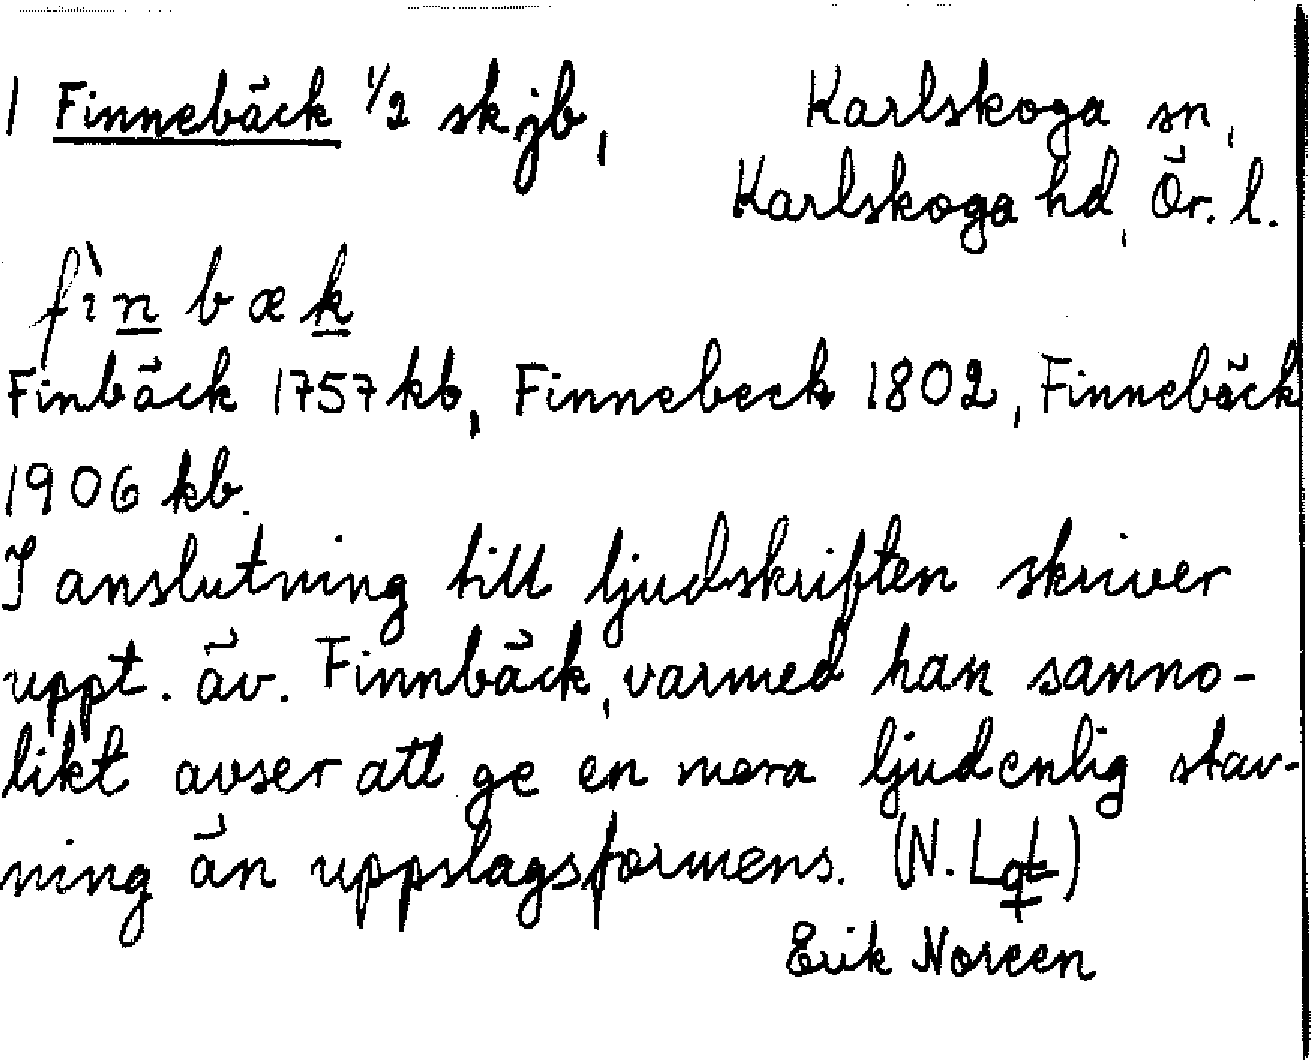 1 Finnebäck 1/2 skjb, Karlskoga sn,
Karlskoga hd, Ör. l.
fìn bæk
Finbäck 1757 kb, Finnebeck 1802, Finnebäck
1906 kb.
I anslutning till ljudskriften skriver
uppt. äv. Finnbäck, varmed han sanno-
likt avser att ge en mera ljudenlig stav-
ning än uppslagsformens. (N. Lqt)
Erik Noreen